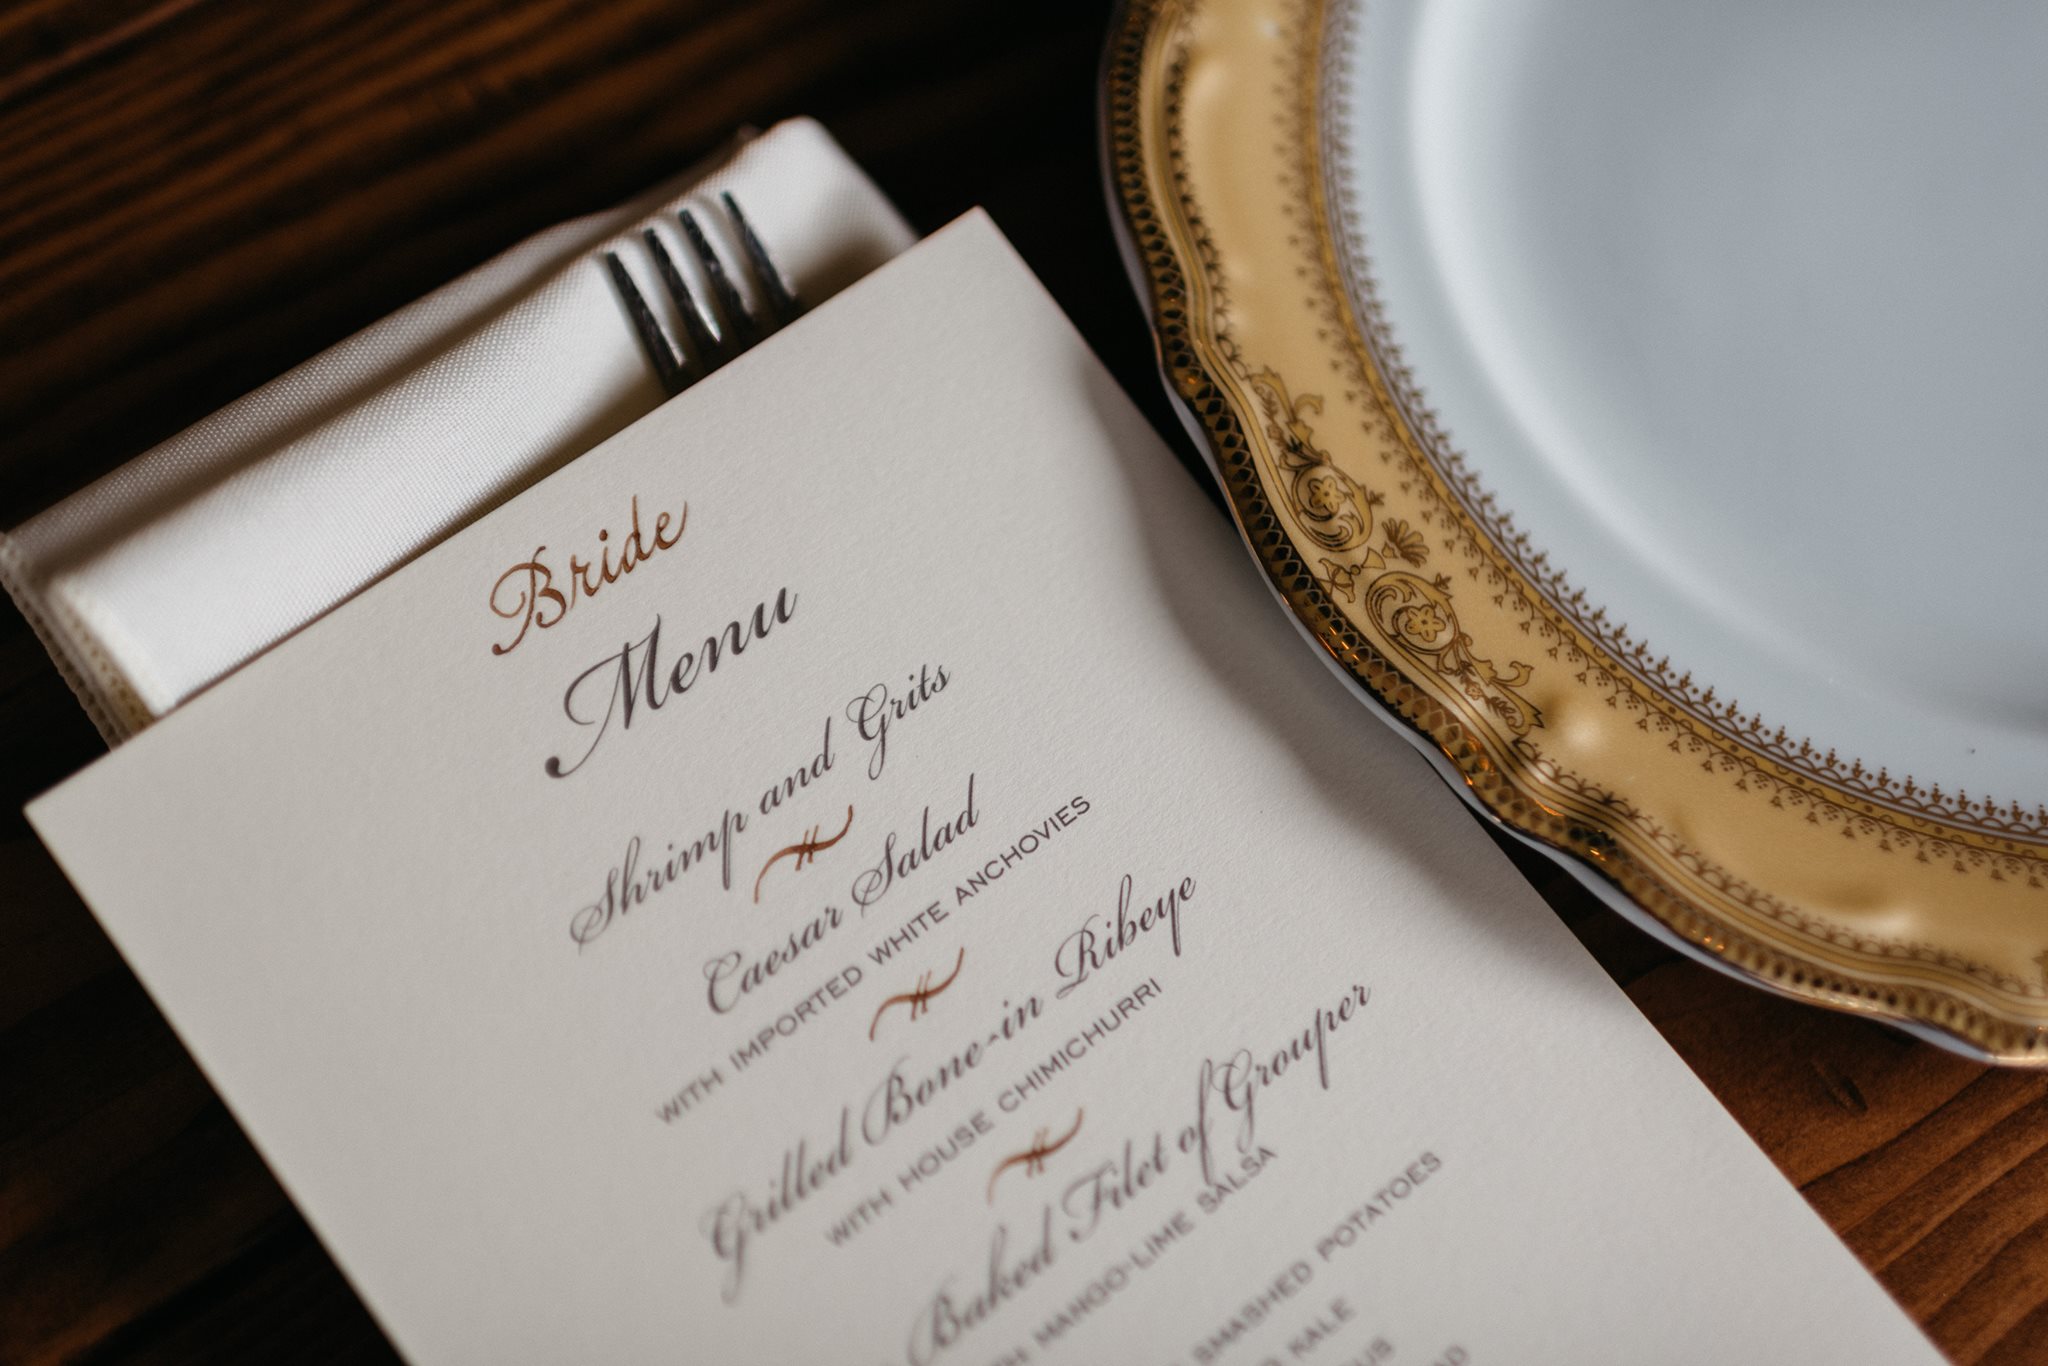 Bride
Menu
Shrimp and Grits
Caesar Salad
WITH IMPORTED WHITE ANCHOVIES
Grilled Bone-in Ribeye
WITH HOUSE CHIMICHURRI
Baked Filet of Grouper
MANGO-LIME SALSA
SMASHED POTATOES
KALE